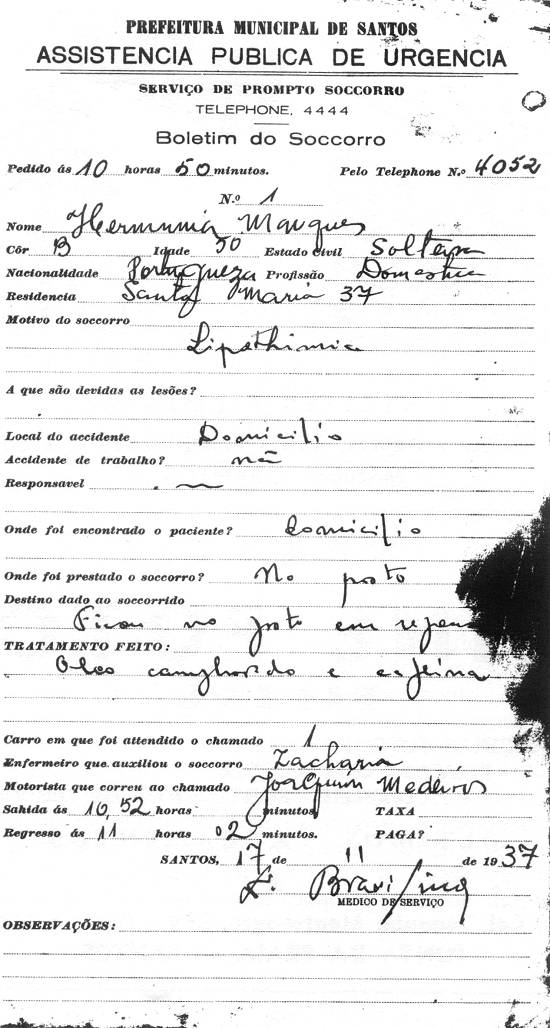 PREFEITURA MUNICIPAL DE SANTOS
ASSISTENCIA PUBLICA DE URGENCIA
SERVIÇO DE PROMPTO SOCCORRO
TELEPHONE, 4444
Boletim do Soccorro
Pedido ás 10 horas 50 minutos. Pelo Telephone N.º 4052
N.º 1
Nome Hermínia Marques
Côr B Idade 50 Estado Civil Solteira
Nacionalidade Portugueza Profissão Domestica
Residencia Santa Maria 37
Motivo do soccorro
Lipothimia
A que são devidas as lesões?
Local do accidente Domicilio
Accidente de trabalho? não
Responsavel
Onde foi encontrado o paciente? domicilio
Onde foi prestado o soccorro? No posto
Destino dado ao soccorrido
Ficou no posto em
TRATAMENTO FEITO:
Oleo camphorado e cafeina
Carro em que foi attendido o chamado 1
Enfermeiro que auxiliou o soccorro Zacharia
Motorista que correu ao chamado Joaquim Medeiros
Sahida ás 10,52 horas minutos TAXA
Regresso ás 11 horas 02 minutos. PAGA?
SANTOS, 17 de 11 de 1937
MEDICO DE SERVIÇO
OBSERVAÇÕES: